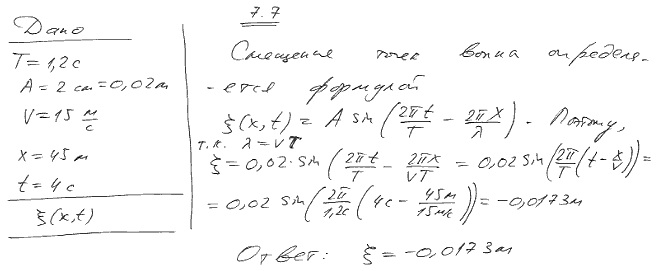 7.7
Дано
T = 1,2 c
A = 2 cm = 0,02 м
V = 15 м/с
x = 45 м
t = 4 c
ξ(x,t)
Смещение точек волна определя-
-ется формулой
ξ(x,t) = A sin(2πt/T − 2πx/λ). Поэтому,
т.к. λ = vT
ξ = 0,02·sin(2πt/T − 2πx/VT) = 0,02 sin(2π/T(t − x/V)) =
= 0,02 sin(2π/1,2c(4c − 45м/15м/с)) = −0,0173м
Ответ: ξ = −0,0173м